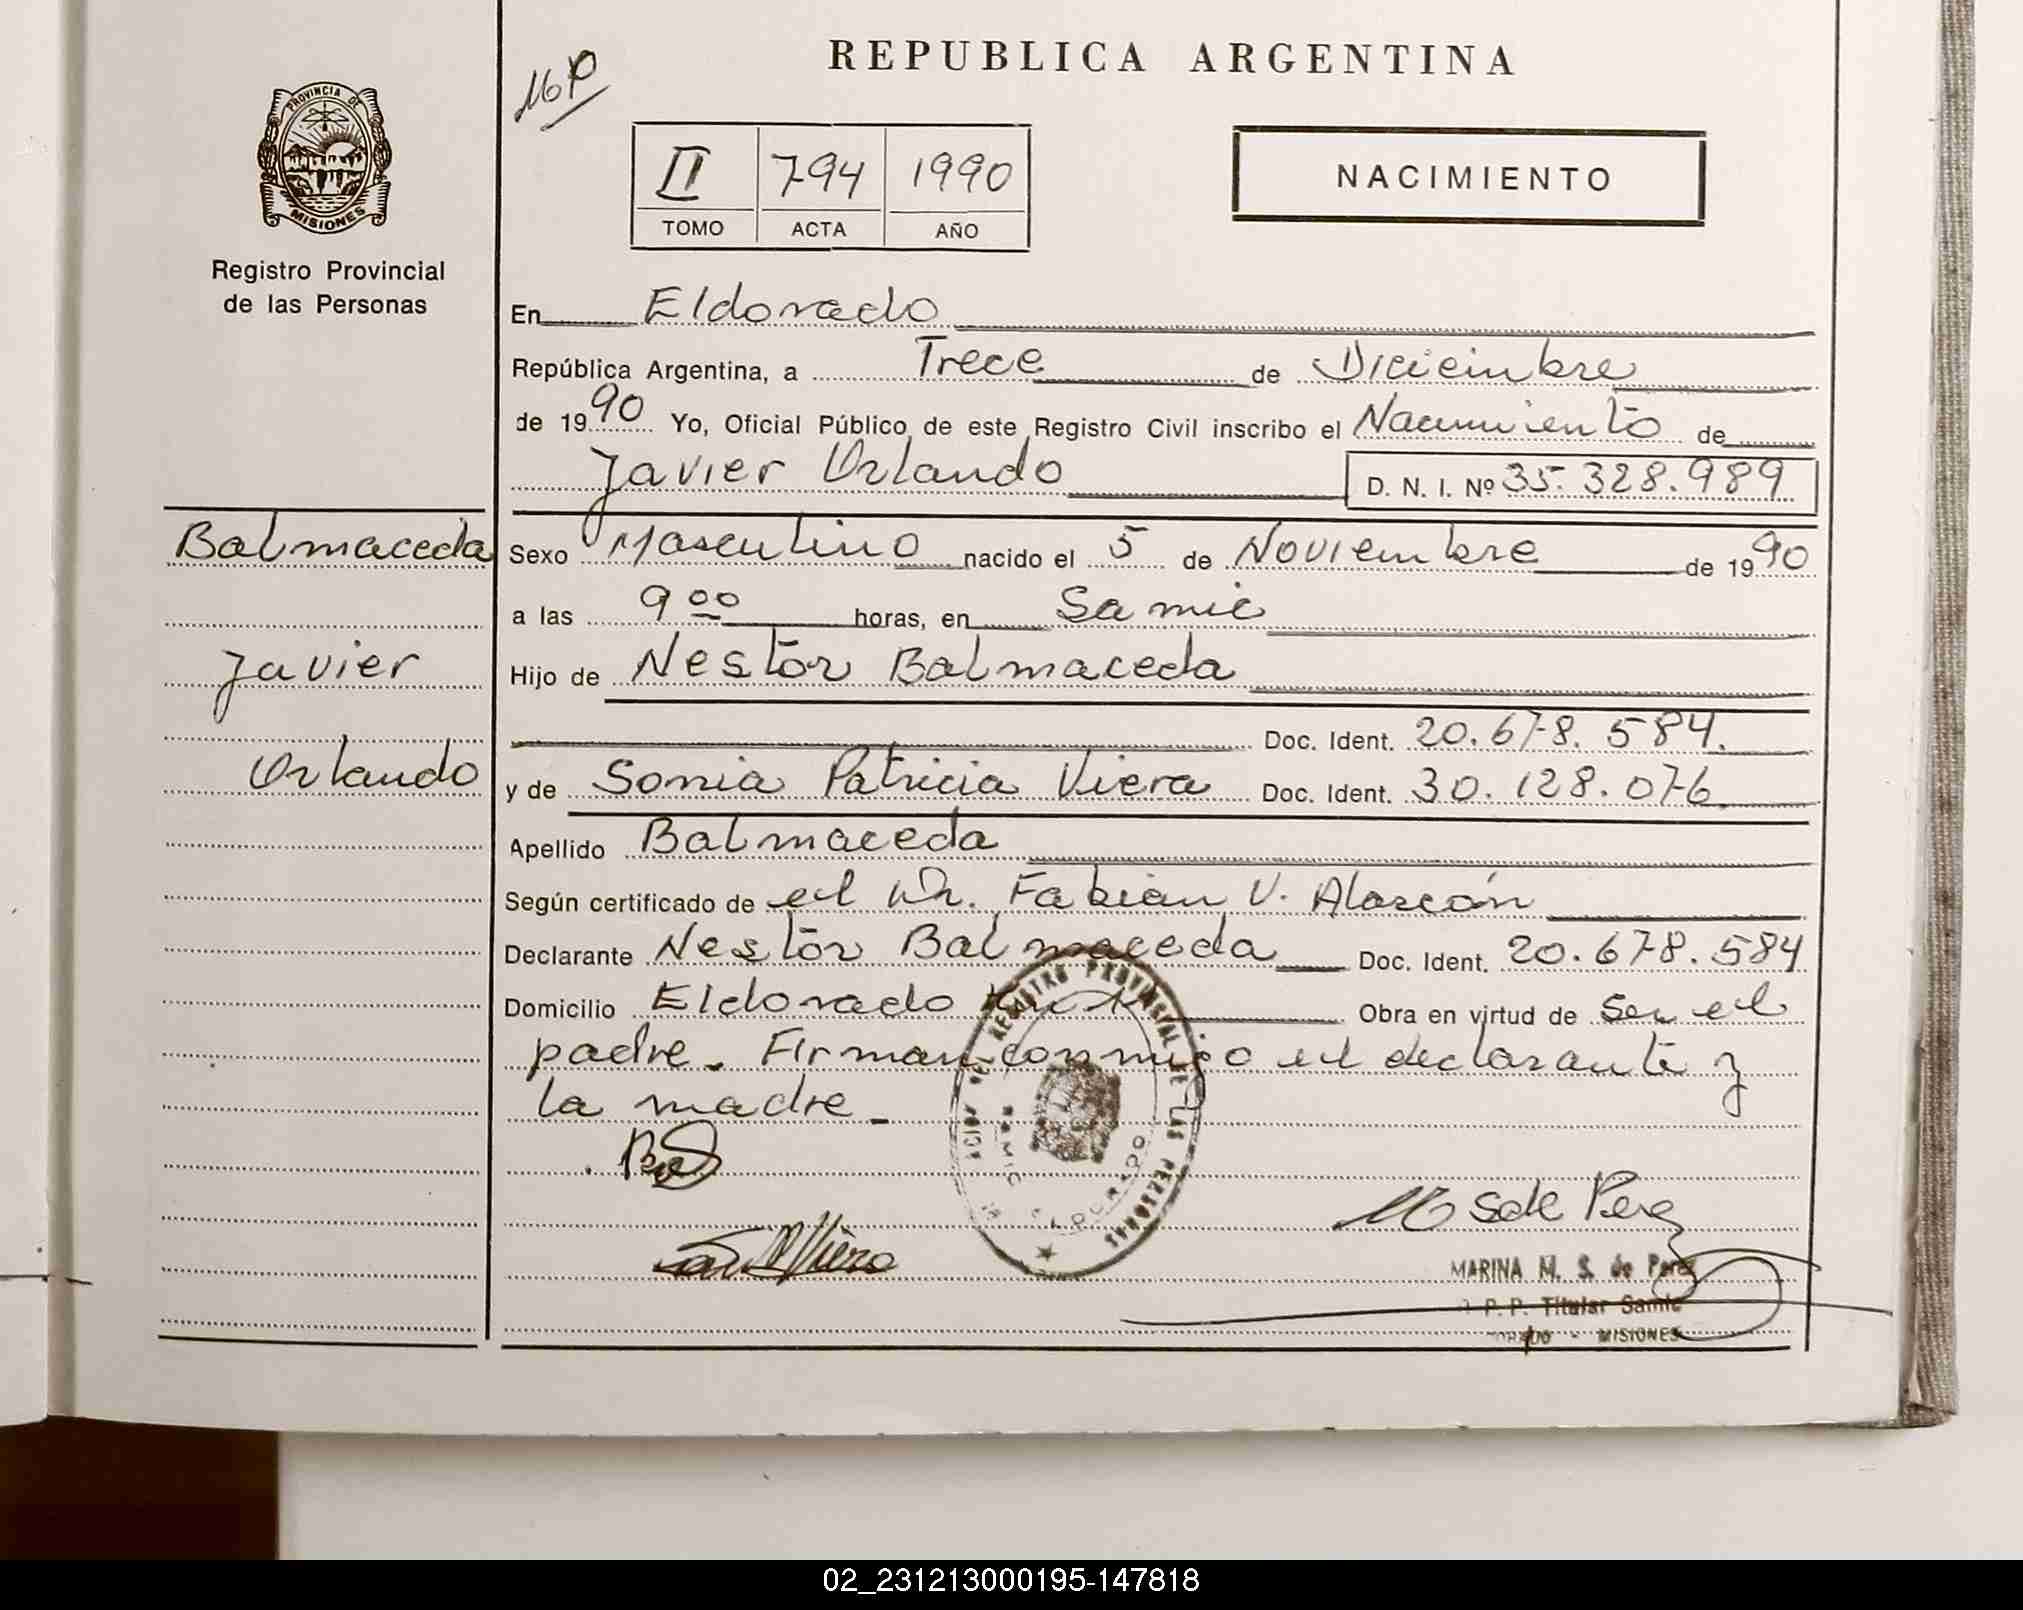 REPUBLICA ARGENTINA
PROVINCIA DE
MISIONES
Registro Provincial
de las Personas
II 794 1990
TOMO ACTA AÑO
NACIMIENTO
En Eldorado
República Argentina, a Trece de Diciembre
de 1990 Yo, Oficial Público de este Registro Civil inscribo el Nacimiento de
Javier Orlando D. N. I. Nº 35.328.989
Balmaceda
Javier
Orlando
Sexo Masculino nacido el 5 de Noviembre de 1990
a las 9 00 horas, en Samic
Hijo de Nestor Balmaceda
Doc. Ident. 20.678.584.
y de Sonia Patricia Viera Doc. Ident. 30.128.076
Apellido Balmaceda
Según certificado de el Dr. Fabian V. Alarcón
Declarante Nestor Balmaceda Doc. Ident. 20.678.584
Domicilio Eldorado Obra en virtud de Ser el
padre. Firman conmigo el declarante y
la madre_
REGISTRO PROVINCIAL DE LAS PERSONAS
ELDORADO
Viera
M S de Perez
MARINA M. S. de Perez
P. P. Titular Samic
MISIONES
02_231213000195-147818